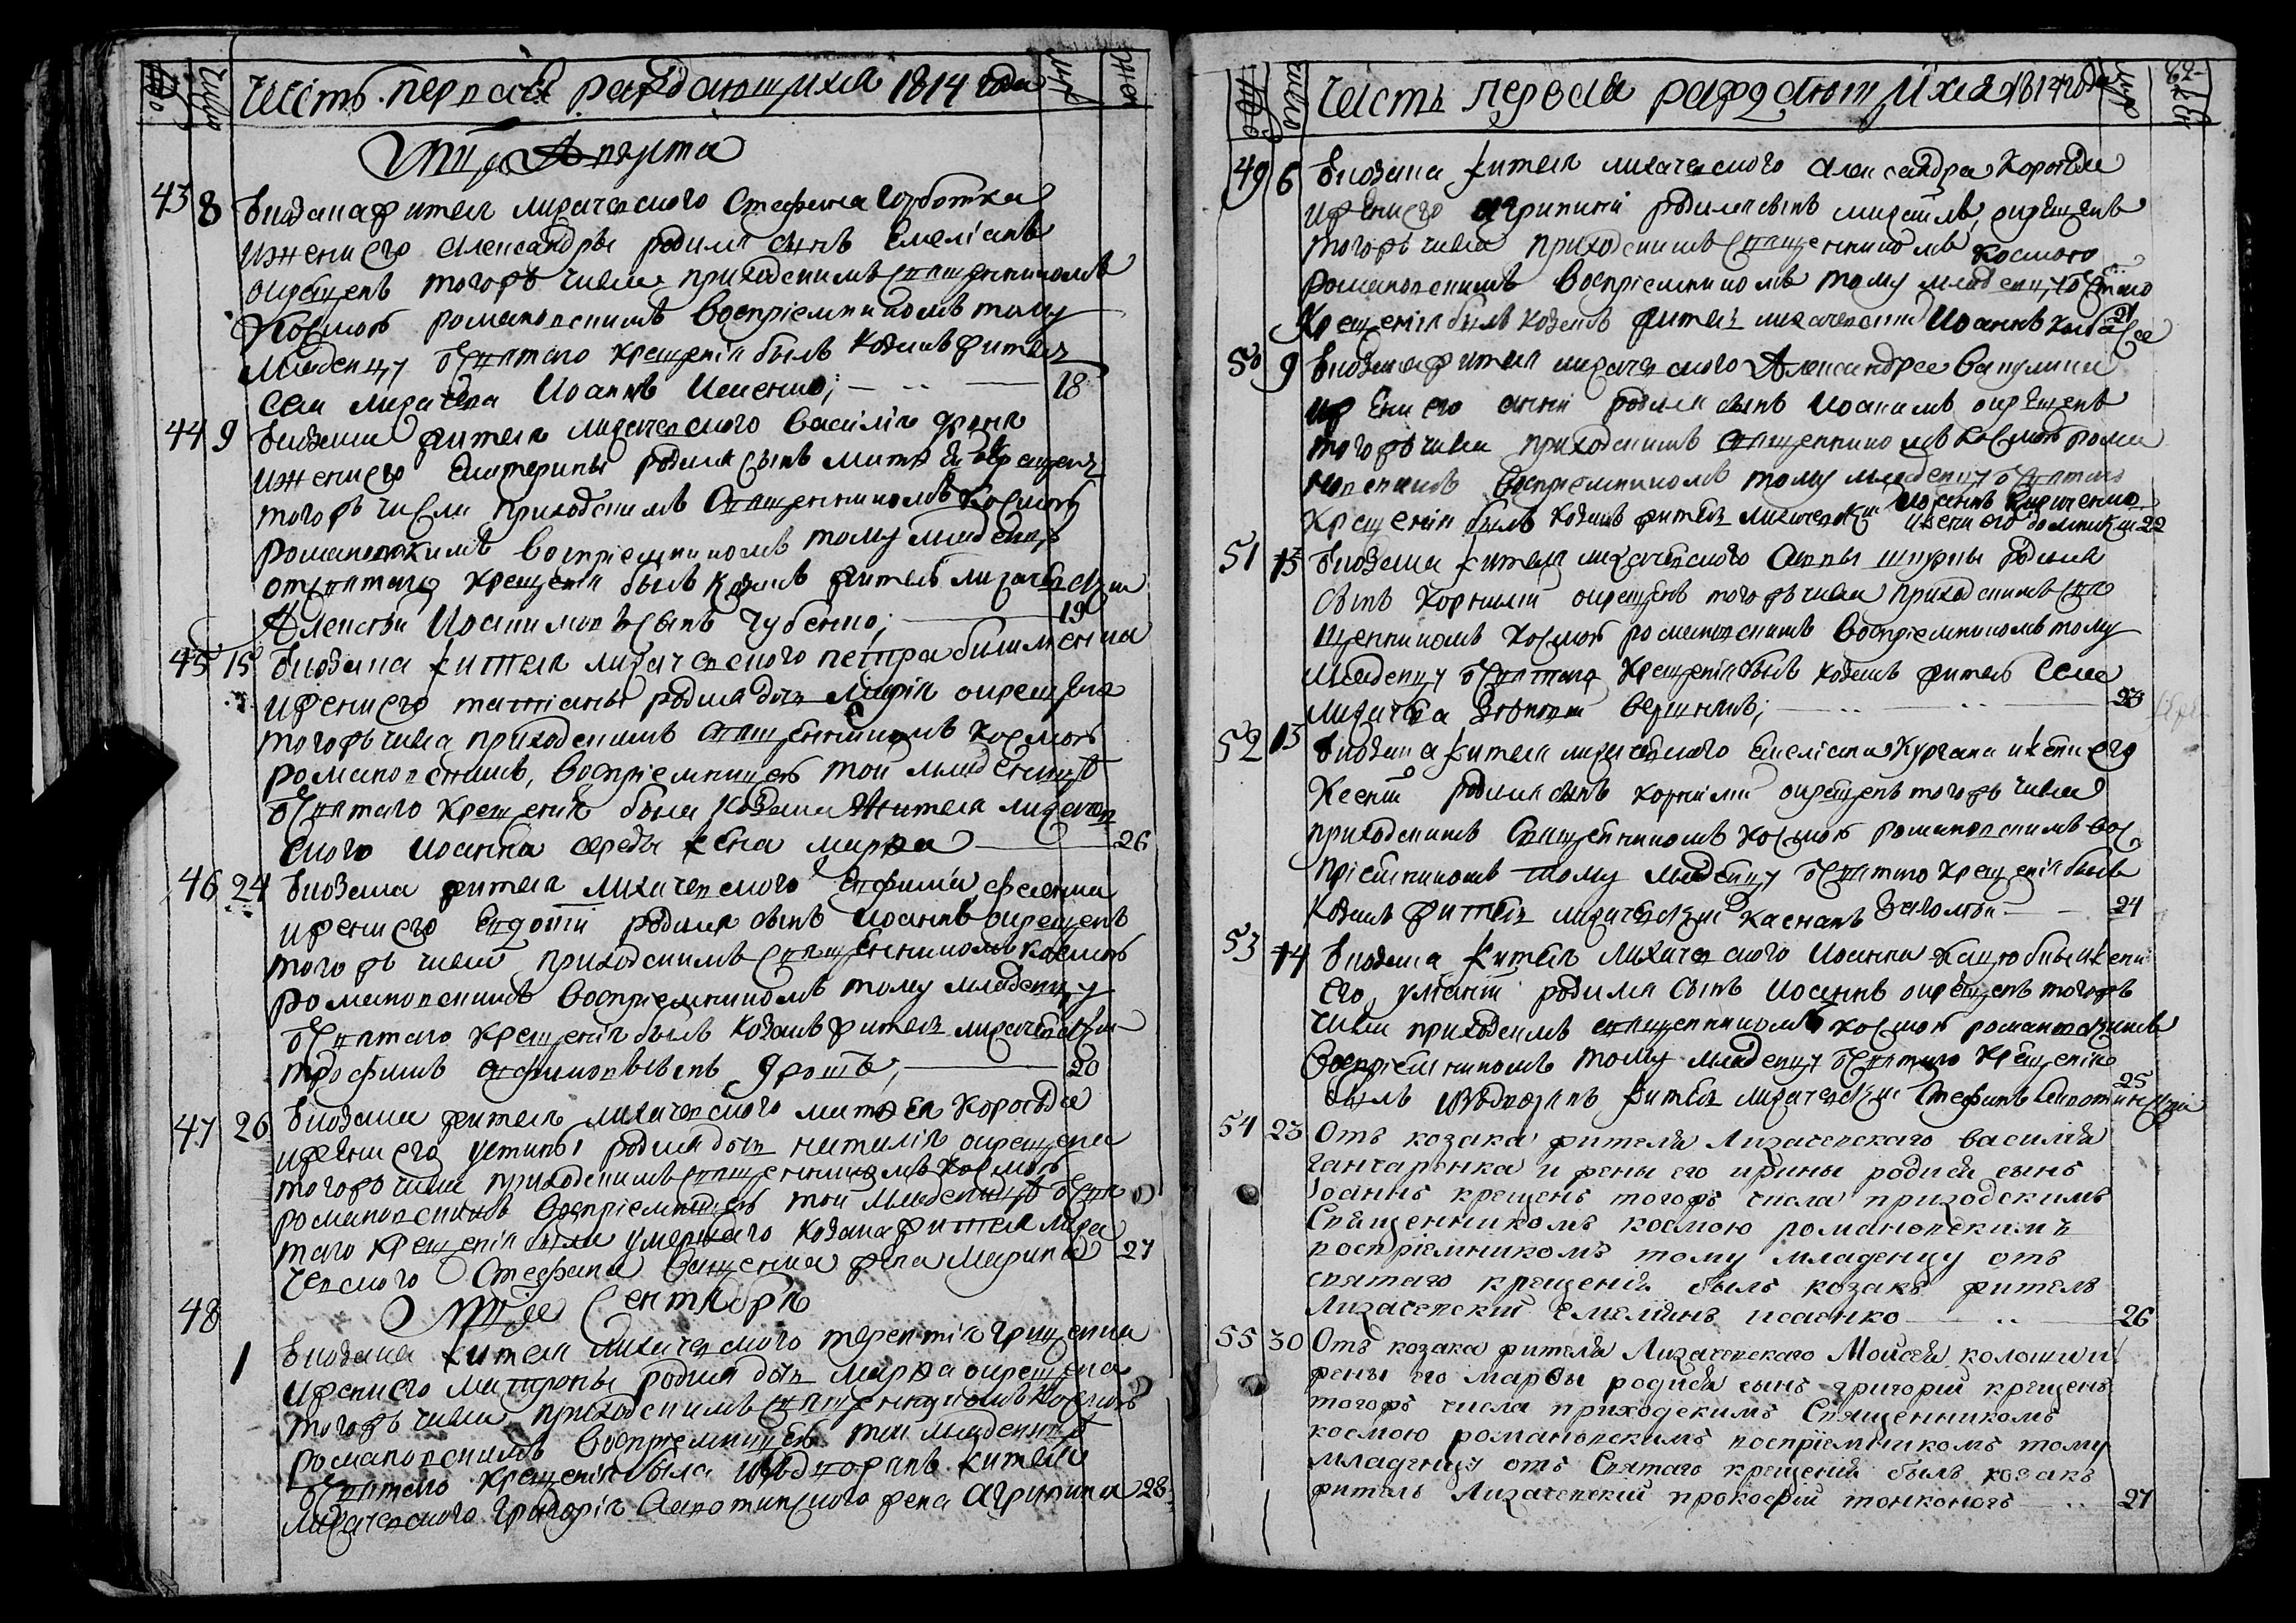 Часть первая раждающихся 1814 года
Мца Августа
43 8 Укозака жителя лихачевского Стефана Горботка
и жени его Александры родился сынъ Емелїанъ
окрещенъ того жъ числа приходскимъ священникомъ
Космою романовскимъ воспрїемникомъ тому
младенцу отъ святаго крещенїя былъ козакъ житель
села лихачева Иоаннъ Исаенко; 18
44 9 Укозака жителя лихачевского василїя
и жени его Екатерины родился сынъ окрещенъ
того жъ числа приходскимъ священникомъ Космою
романовскимъ воспрїемникомъ тому младенцу
отъ святаго крещенїя былъ козакъ житель лихачевский
Алексей Иоакимовъ сынъ Чубенко; 19
45 15 Укозака жителя лихачевского петра
и жени его татїаны родилась дочь Марїя окрещена
того жъ числа приходскимъ священникомъ космою
романовскимъ, воспрїемницею той младеницѣ
отъ святаго крещенїя была козака жителя лихачев
ского иоанна середы жена марѳа 26
46 24 Укозака жителя лихачевского Евфимїя
и жени его Евдокїи родился сынъ иоаннъ окрещенъ
того жъ числа приходскимъ священникомъ космою
романовскимъ воспрїемникомъ тому младенцу
отъ святаго крещенїя былъ козакъ житель лихачевский
трофимъ сынъ ; 20
47 26 Укозака жителя лихачевского матѳея Коробки
и жени его устины родилась дочь наталїя окрещена
того жъ числа приходскимъ священникомъ Космою
романовскимъ воспрїемницею той младеницѣ отъ свя
таго крещенїя была умершаго козака жителя лиха
чевского Стефана жена Марина 27
48 Мца Сентября
1 Укозака жителя лихачевского терентїя грищенка
и жени его матроны родилась дочь марѳа окрещена
того жъ числа приходскимъ священникомъ Космою
романовскимъ воспрїемницею той младеницѣ
отъ святаго крещенїя была жителя
лихачевского Григорїя жена агрипина 28
Часть первая раждающихся 1814 года
82
49 6 Укозака жителя лихачевского александра Коробки
и жени его агрипини родился сынъ михаилъ, окрещенъ
того жъ числа приходскимъ священникомъ Космою
романовскимъ воспрїемникомъ тому младенцу отъ святаго
крещенїя былъ козакъ житель лихачевский Иоаннъ 21
50 9 Укозака жителя лихачевского Александра Вакулина
и жени его анни родился сынъ Иоакимъ окрещенъ
того жъ числа приходскимъ священникомъ Космою рома
новскимъ воспрїемникомъ тому младенцу отъ святаго
крещенїя былъ козакъ житель лихачевский Иоаннъ 22
51 13 Укозака жителя лихачевского Анны родился
сынъ корнилїй окрещенъ того жъ числа приходскимъ свя
щенникомъ космою романовскимъ воспрїемникомъ тому
младенцу отъ святаго крещенїя былъ козакъ житель села
лихачева ; 23
52 13 Укозака жителя лихачевского Емелїана Кургана и жени его
Ксенїи родился сынъ корнилїй окрещенъ того жъ числа
приходскимъ священникомъ космою романовскимъ вос
прїемникомъ тому младенцу отъ святаго крещенїя былъ
козакъ житель лихачевский касїанъ 24
53 14 Укозака жителя лихачевского Иоанна и жени
его улїанїи родился сынъ иоаннъ окрещенъ того жъ
числа приходскимъ священникомъ космою романовскимъ
воспрїемникомъ тому младенцу отъ святаго крещенїя
былъ житель лихачевский Стефанъ 25
54 23 Отъ козака жителя Лихачевскаго василїя
ганчаренка и жены его ирины родися сынъ
Iоаннъ крещенъ того жъ числа приходскимъ
Священникомъ космою романовскимъ
воспрїемникомъ тому младенцу отъ
святаго крещенїя былъ козакъ житель
Лихачевский емелїянъ исаенко 26
55 30 Отъ козака жителя Лихачевскаго Моисея колоши и
жены его марѳы родися сынъ григорий крещенъ
того жъ числа приходскимъ Священникомъ
космою романовскимъ воспрїемникомъ тому
младенцу отъ Святаго крещенїя былъ козакъ
житель Лихачевский прокофий тонконогъ 27